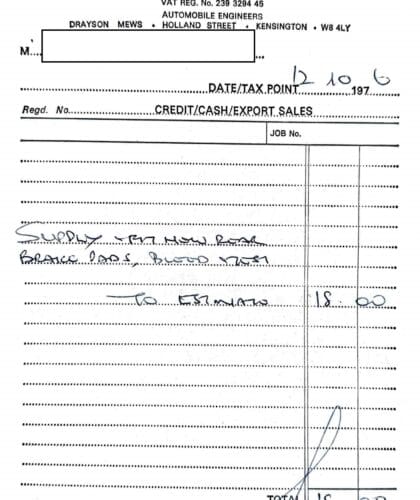 VAT REG. No. 239 3294 45
AUTOMOBILE ENGINEERS
DRAYSON MEWS • HOLLAND STREET • KENSINGTON • W8 4LY
M
DATE/TAX POINT 12 10 197 6
Regd. No. CREDIT/CASH/EXPORT SALES
JOB No.
SUPPLY + FIT NEW REAR
BRAKE PADS, BLEED + TEST
TO ESTIMATE 18.00
TOTAL 18 00